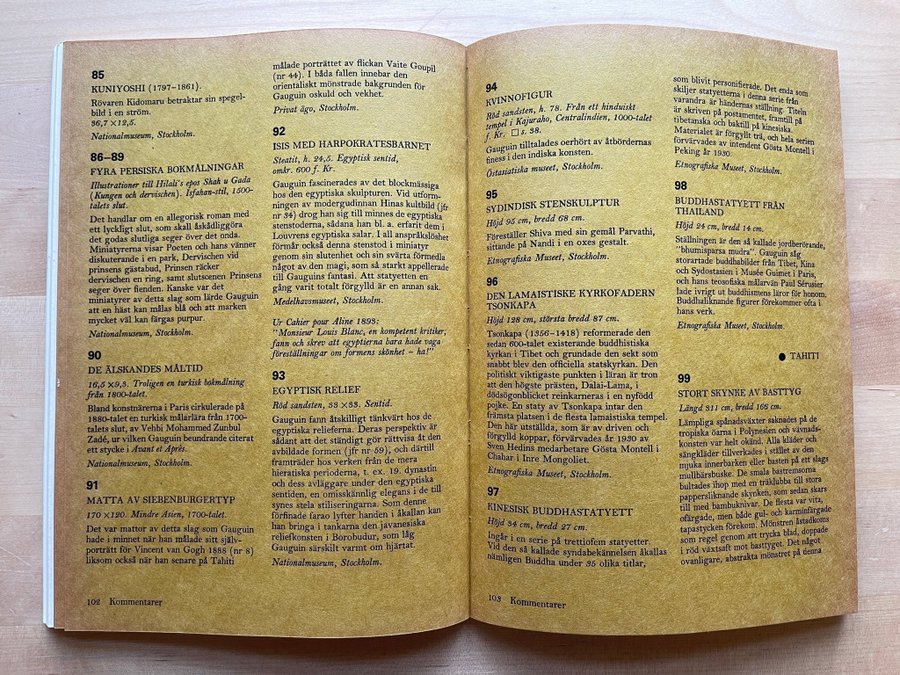 85
KUNIYOSHI (1797–1861).
Rövaren Kidomaru betraktar sin spegel-
bild i en ström.
36,7 × 12,5.
Nationalmuseum, Stockholm.
86–89
FYRA PERSISKA BOKMÅLNINGAR
Illustrationer till Hilali's epos Shak u Gada
(Kungen och dervischen). Isfahan-stil, 1500-
talets slut.
Det handlar om en allegorisk roman med
ett lyckligt slut, som skall åskådliggöra
det godas slutliga seger över det onda.
Miniatyrerna visar Poeten och hans vänner
diskuterande i en park, Dervischen vid
prinsens gästabud, Prinsen räcker
dervischen en ring, samt slutscenen Prinsens
seger över fienden. Kanske var det
miniatyrer av detta slag som lärde Gauguin
att en häst kan målas blå och att marken
mycket väl kan färgas purpur.
Nationalmuseum, Stockholm.
90
DE ÄLSKANDES MÅLTID
16,5 × 9,3. Troligen en turkisk bokmålning
från 1800-talet.
Bland konstnärerna i Paris cirkulerade på
1880-talet en turkisk målarlära från 1700-
talets slut, av Vehbi Mohammed Zunbul
Zadé, ur vilken Gauguin beundrande citerat
ett stycke i Avant et Après.
Nationalmuseum, Stockholm.
91
MATTA AV SIEBENBURGERTYP
170 × 120. Mindre Asien, 1700-talet.
Det var mattor av detta slag som Gauguin
hade i minnet när han målade sitt själv-
porträtt för Vincent van Gogh 1888 (nr 8)
liksom också när han senare på Tahiti
102 Kommentarer
målade porträttet av flickan Vaite Goupil
(nr 44). I båda fallen innebar den
orientaliskt mönstrade bakgrunden för
Gauguin oskuld och vekhet.
Privat ägo, Stockholm.
92
ISIS MED HARPOKRATESBARNET
Steatit, h. 24,5. Egyptisk sentid,
omkr. 600 f. Kr.
Gauguin fascinerades av det blockmässiga
hos den egyptiska skulpturen. Vid utform-
ningen av modergudinnan Hinas kultbild (jfr
nr 34) drog han sig till minnes de egyptiska
stenstoderna, sådana han bl. a. erfarit dem i
Louvrens egyptiska salar. I all anspråkslöshet
förmår också denna stenstod i miniatyr
genom sin slutenhet och sin svärta förmedla
något av den magi, som så starkt appellerade
till Gauguins fantasi. Att statyetten en
gång varit totalt förgylld är en annan sak.
Medelhavsmuseet, Stockholm.
Ur Cahier pour Aline 1893:
"Monsieur Louis Blanc, en kompetent kritiker,
fann och skrev att egyptierna bara hade vaga
föreställningar om formens skönhet – ha!"
93
EGYPTISK RELIEF
Röd sandsten, 33 × 33. Sentid.
Gauguin fann åtskilligt tänkvärt hos de
egyptiska relieferna. Deras perspektiv är
sådant att det ständigt gör rättvisa åt den
avbildade formen (jfr nr 59), och därtill
framträder hos verken från de mera
hieratiska perioderna, t. ex. 19. dynastin
och dess avläggare under den egyptiska
sentiden, en omisskännlig elegans i de till
synes stela stiliseringarna. Som denne
förfinade farao lyfter handen i åkallan kan
han bringa i tankarna den javanesiska
reliefkonsten i Borobudur, som låg
Gauguin särskilt varmt om hjärtat.
Nationalmuseum, Stockholm.
94
KVINNOFIGUR
Röd sandsten, h. 78. Från ett hinduiskt
tempel i Kajuraho, Centralindien, 1000-talet
f. Kr. □ s. 38.
Gauguin tilltalades oerhört av åtbördernas
finess i den indiska konsten.
Östasiatiska museet, Stockholm.
95
SYDINDISK STENSKULPTUR
Höjd 95 cm, bredd 68 cm.
Föreställer Shiva med sin gemål Parvathi,
sittande på Nandi i en oxes gestalt.
Etnografiska Museet, Stockholm.
96
DEN LAMAISTISKE KYRKOFADERN
TSONKAPA
Höjd 128 cm, största bredd 87 cm.
Tsonkapa (1356–1418) reformerade den
sedan 600-talet existerande buddhistiska
kyrkan i Tibet och grundade den sekt som
snabbt blev den officiella statskyrkan. Den
politiskt viktigaste punkten i läran är tron
att den högste prästen, Dalai-Lama, i
dödsögonblicket reinkarneras i en nyfödd
pojke. En staty av Tsonkapa intar den
främsta platsen i de flesta lamaistiska tempel.
Den här utställda, som är av driven och
förgylld koppar, förvärvades år 1930 av
Sven Hedins medarbetare Gösta Montell i
Chahar i Inre Mongoliet.
Etnografiska Museet, Stockholm.
97
KINESISK BUDDHASTATYETT
Höjd 34 cm, bredd 27 cm.
Ingår i en serie på trettiofem statyetter.
Vid den så kallade syndabekännelsen åkallas
nämligen Buddha under 35 olika titlar,
103 Kommentarer
som blivit personifierade. Det enda som
skiljer statyetterna i denna serie från
varandra är händernas ställning. Titeln
är skriven på postamentet, framtill på
tibetanska och baktill på kinesiska.
Materialet är förgyllt trä, och hela serien
förvärvades av intendent Gösta Montell i
Peking år 1930.
Etnografiska Museet, Stockholm.
98
BUDDHASTATYETT FRÅN
THAILAND
Höjd 24 cm, bredd 14 cm.
Ställningen är den så kallade jordberörande,
"bhumisparsa mudra". Gauguin såg
storartade buddhabilder från Tibet, Kina
och Sydostasien i Musée Guimet i Paris,
och hans teosofiska målarvän Paul Sérusier
lade ivrigt ut buddhismens läror för honom.
Buddhaliknande figurer förekommer ofta i
hans verk.
Etnografiska Museet, Stockholm.
● TAHITI
99
STORT SKYNKE AV BASTTYG
Längd 311 cm, bredd 166 cm.
Lämpliga spånadsväxter saknades på de
tropiska öarna i Polynesien och vävnads-
konsten var helt okänd. Alla kläder och
sängkläder tillverkades i stället av den
mjuka innerbarken eller basten på ett slags
mullbärsbuske. De smala bastremsorna
bultades ihop med en träklubba till stora
pappersliknande skynken, som sedan skars
till med bambuknivar. De flesta var vita,
ofärgade, men både gul- och karminfärgade
tapastycken förekom. Mönstren åstadkoms
som regel genom att trycka blad, doppade
i röd växtsaft mot basttyget. Det något
ovanligare, abstrakta mönstret på denna